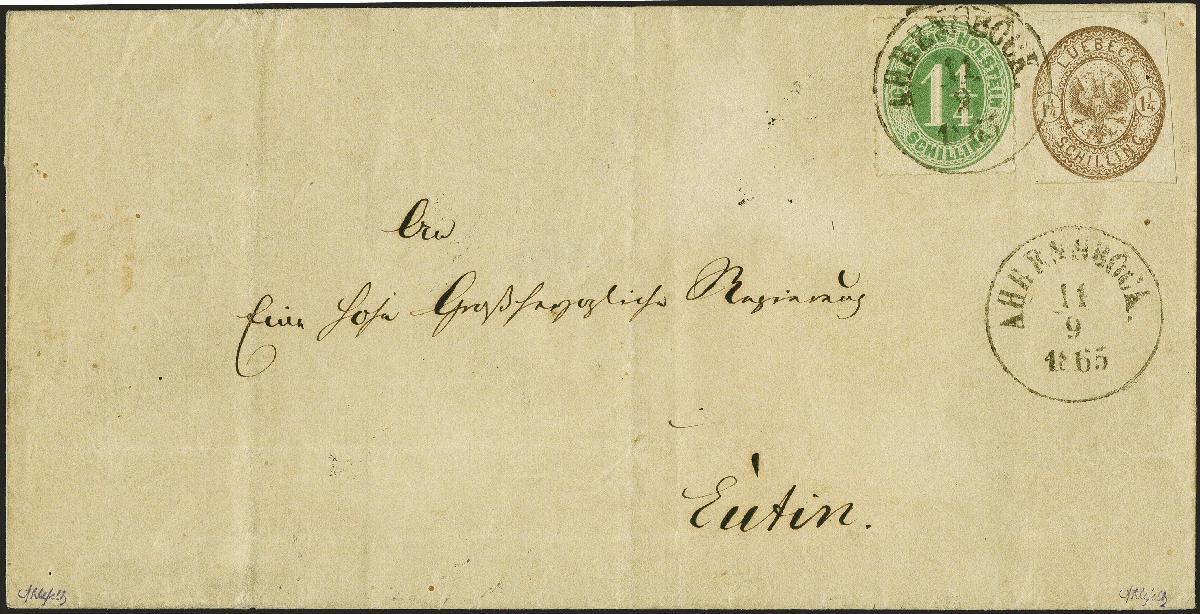 AHRENSBÖCK.
11
9
1865
HOLSTEIN
1¼
SCHILLING
LUEBECK
1¼ 1¼
SCHILLING
An
Eine hohe Großherzogliche Regierung
AHRENSBÖCK.
11
9
1865
Eutin.